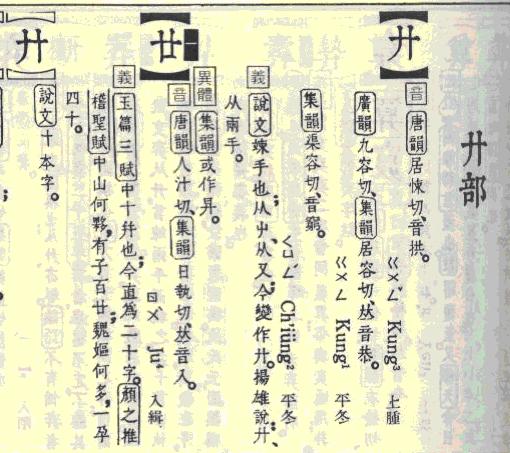 廾部
【廾】
音 唐韻居悚切、音拱。ㄍㄨㄥˇ Kung³ 上腫
廣韻九容切、集韻居容切、𠀤音恭。ㄍㄨㄥ Kung¹ 平冬
集韻渠容切、音窮。ㄑㄩㄥˊ Ch'iüng² 平冬
義 說文竦手也；从𠂇、从又；今變作廾。揚雄說廾、
从兩手。
異體 集韻或作𢌬。
【廿】
音 唐韻人汁切、集韻日執切、𠀤音入。ㄖㄨˋ 入緝
義 玉篇三賦中十幷也；今直爲二十字。顏之推
稽聖賦中山何夥，有子百廿；魏嫗何多，一孕
四十。
【卄】
說文十本字。